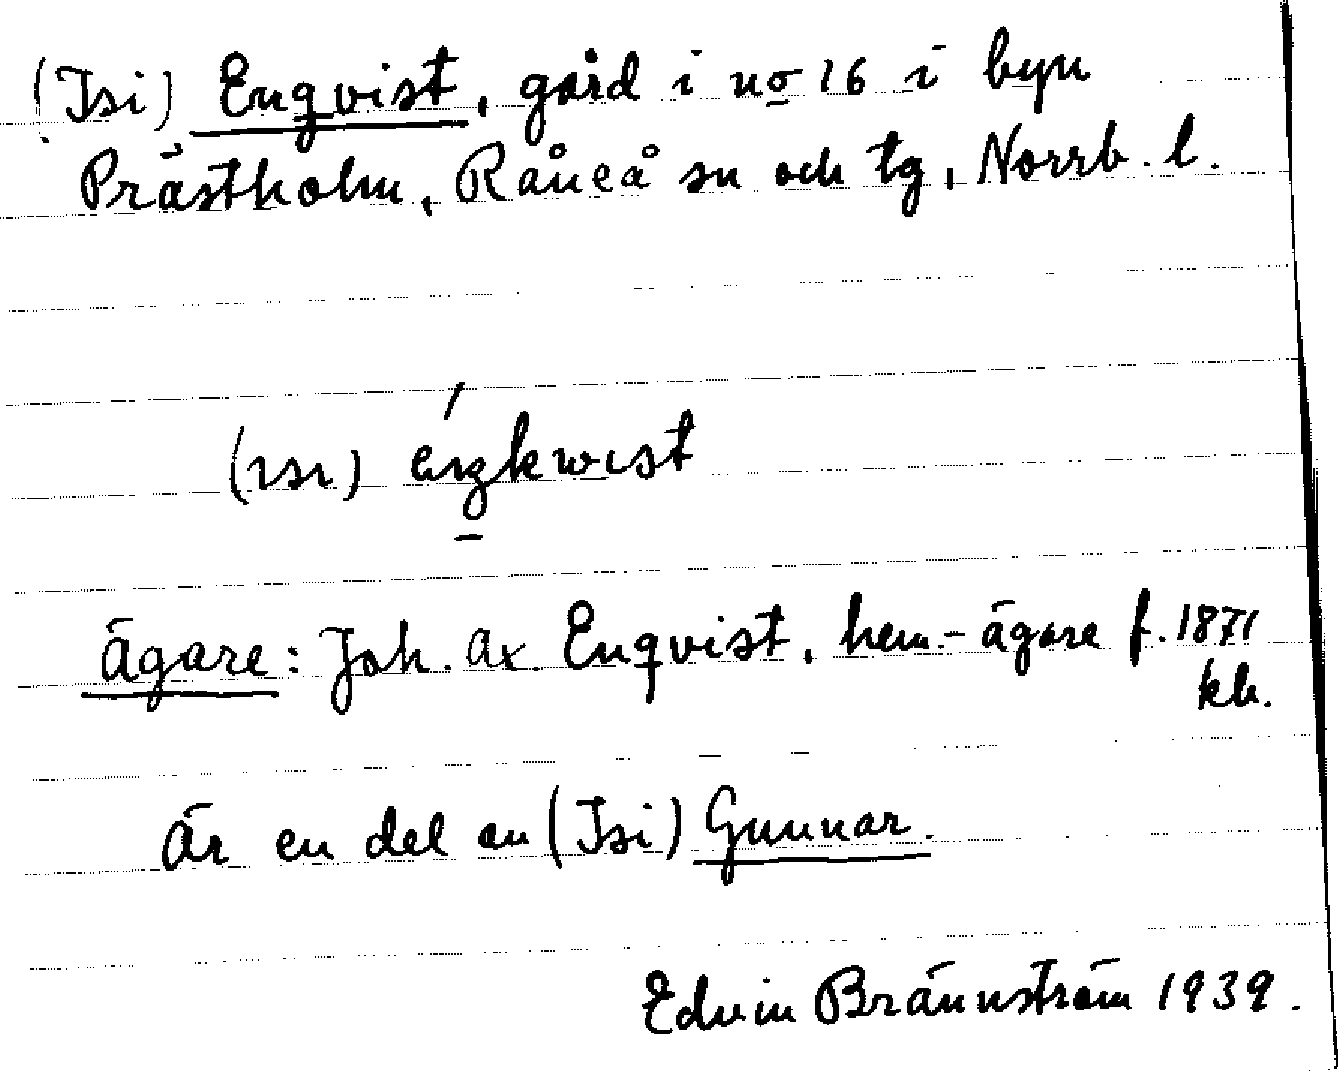 (Isi) Enqvist, gård i no 16 i byn
Prästholm, Råneå sn och tg, Norrb. l.
(ısı) éŋkwıst
Ägare: Joh. Ax. Enqvist, hem.-ägare f. 1871
kb.
Är en del av (Isi) Gunnar.
Edvin Brännström 1939.